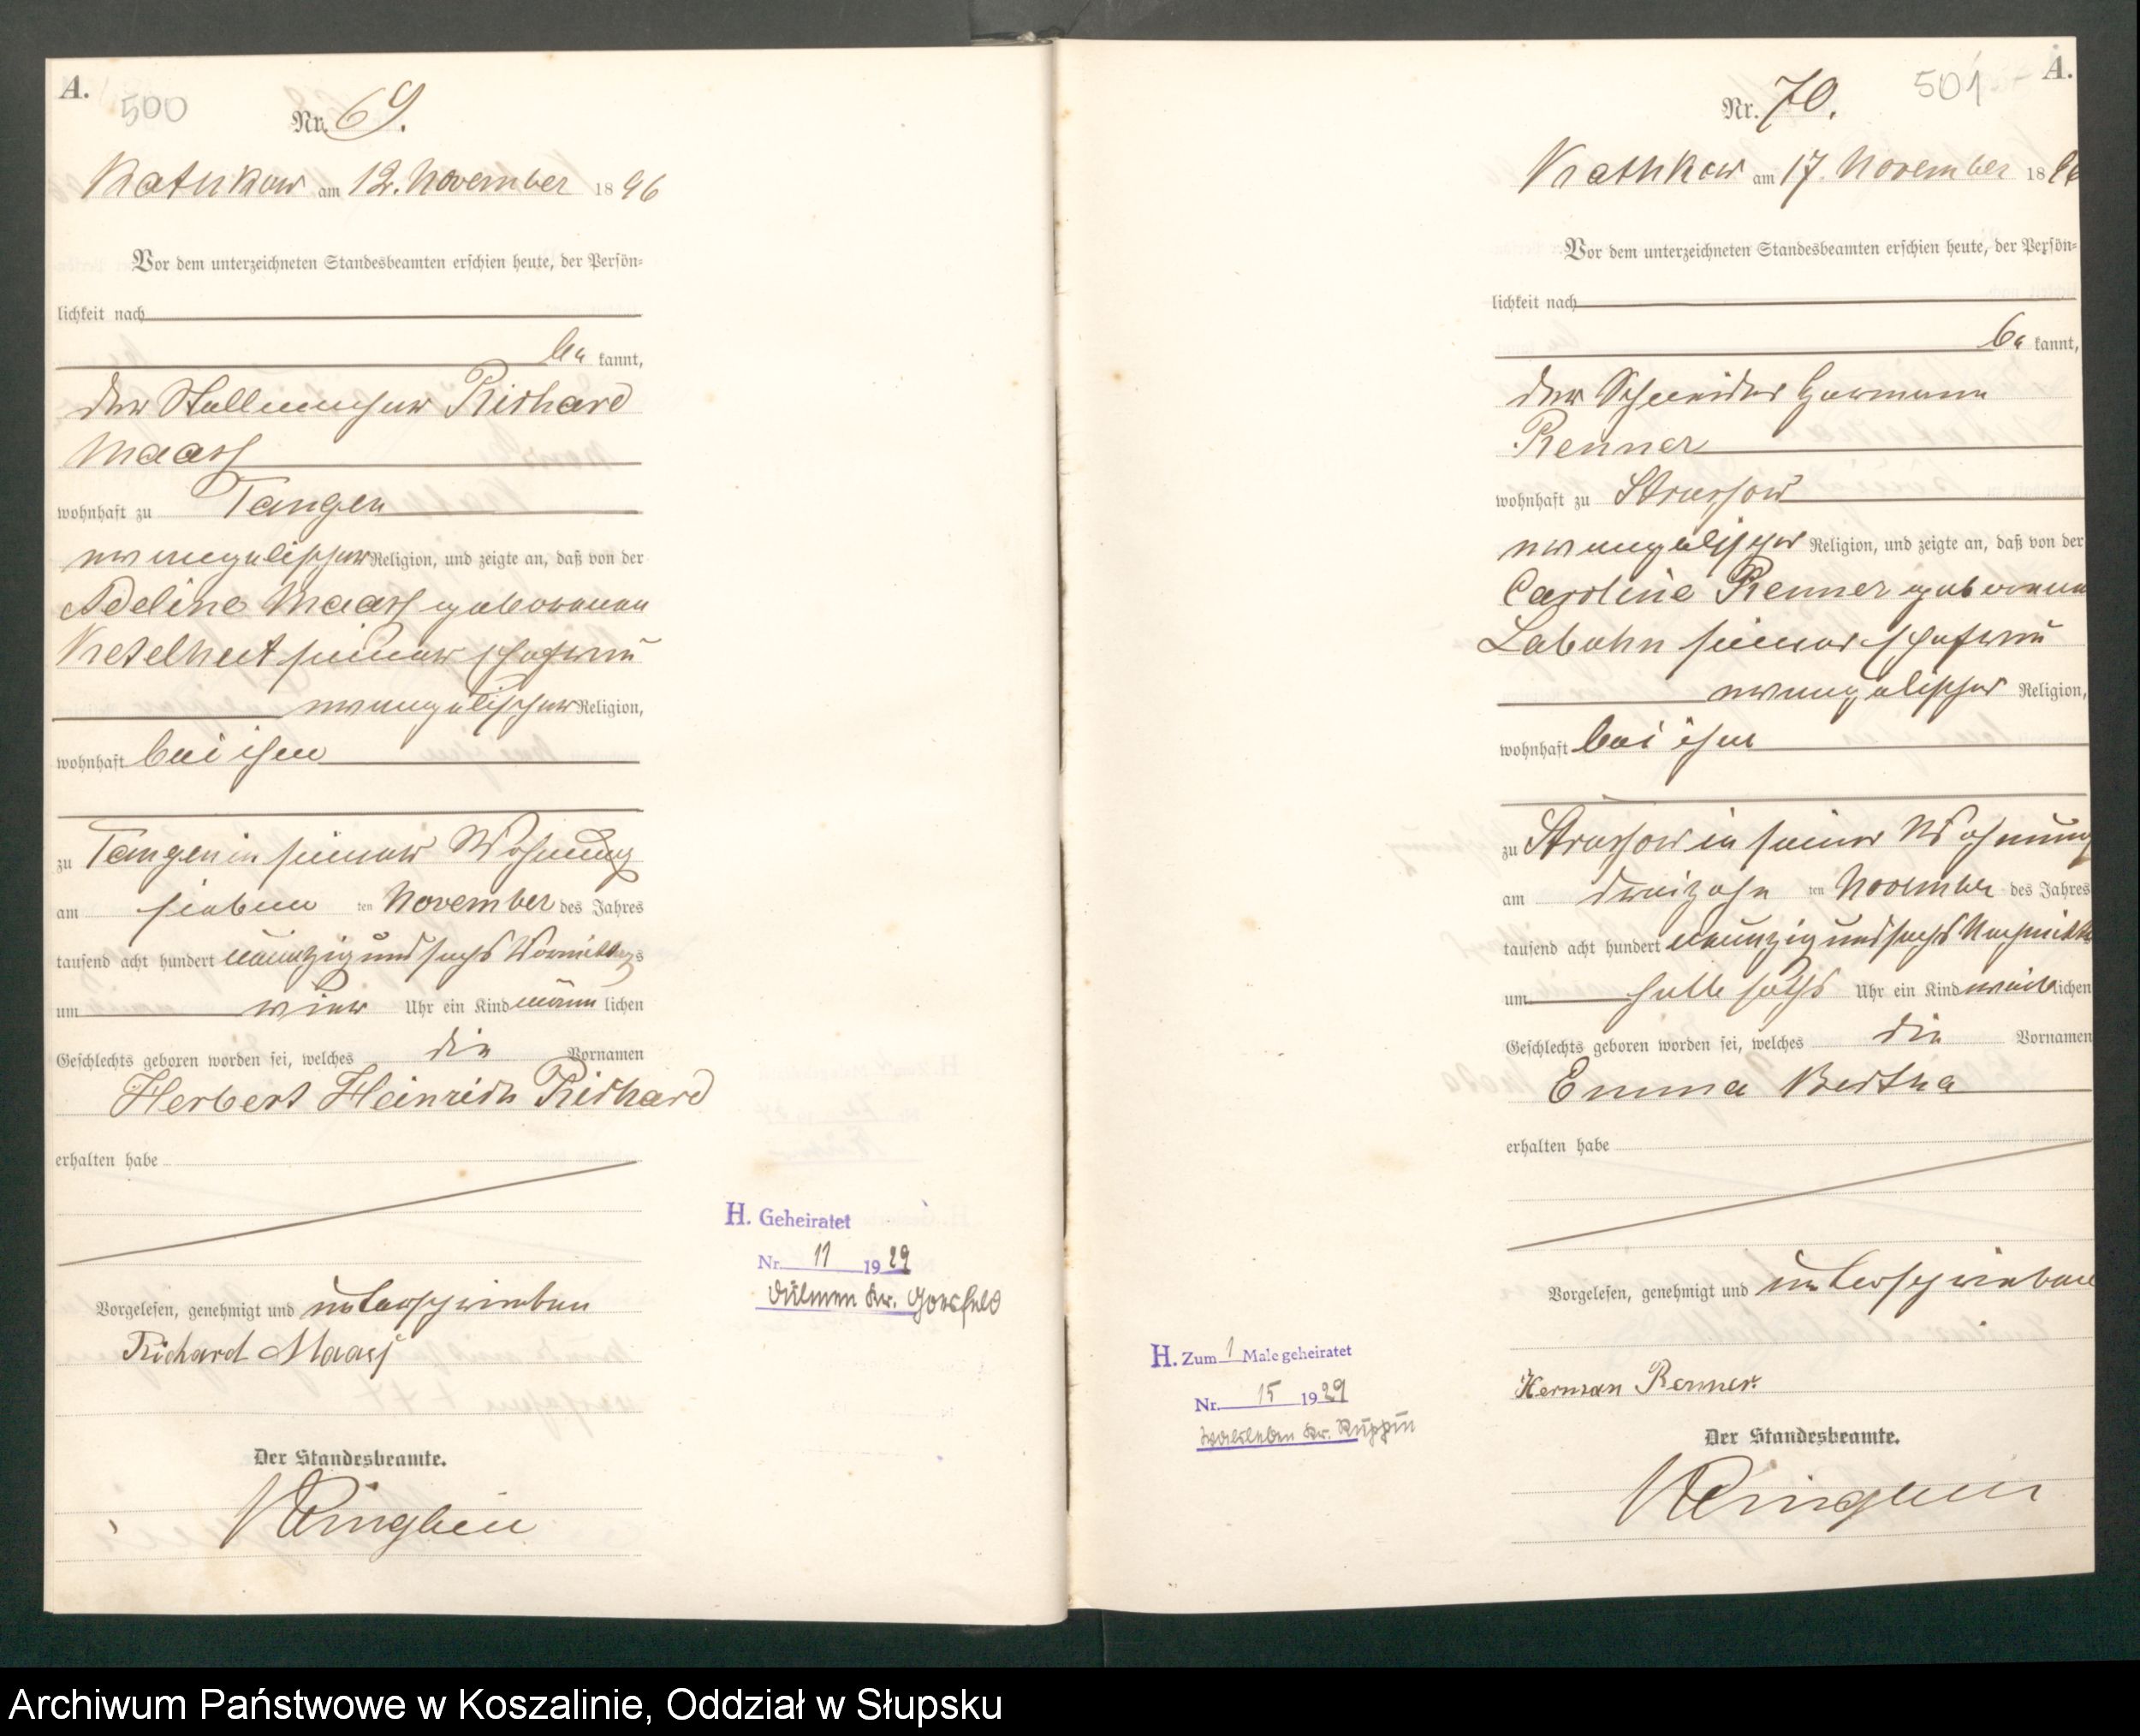 A.
500
Nr. 69.
Kathkow am 12. November 1896
Vor dem unterzeichneten Standesbeamten erschien heute, der Persön-
lichkeit nach
be kannt,
der Stellmacher Richard
Maass
wohnhaft zu Tangen
evangelischer Religion, und zeigte an, daß von der
Adeline Maass geborenen
Ketelheit seiner Ehefrau
evangelischer Religion,
wohnhaft bei ihm
zu Tangen in seiner Wohnung
am sieben ten November des Jahres
tausend acht hundert neunzig und sechs Vormittags
um vier Uhr ein Kind männlichen
Geschlechts geboren worden sei, welches die Vornamen
Herbert Heinrich Richard
erhalten habe
Vorgelesen, genehmigt und unterschrieben
Richard Maass
Der Standesbeamte.
H. Geheiratet
Nr. 11 1929
Dülmen Kr. Coesfeld
A.
501
Nr. 70.
Kathkow am 17. November 1896
Vor dem unterzeichneten Standesbeamten erschien heute, der Persön-
lichkeit nach
be kannt,
der Schneider Hermann
Renner
wohnhaft zu Strussow
evangelischer Religion, und zeigte an, daß von der
Caroline Renner geborene
Labuhn seiner Ehefrau
evangelischer Religion,
wohnhaft bei ihm
zu Strussow in seiner Wohnung
am dreizehn ten November des Jahres
tausend acht hundert neunzig und sechs Nachmitta
um halb sechs Uhr ein Kind weiblichen
Geschlechts geboren worden sei, welches die Vornamen
Emma Bertha
erhalten habe
Vorgelesen, genehmigt und unterschrieben
Herman Renner.
Der Standesbeamte.
H. Zum 1 Male geheiratet
Nr. 15 1929
Walsleben Kr. Ruppin
Archiwum Państwowe w Koszalinie, Oddział w Słupsku